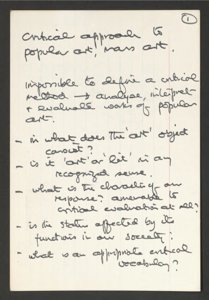 1
Critical approach to
popular art, mass art.
impossible to define a critical
method → analyse, interpret
+ evaluate works of popular
art.
- in what does the 'art' object
consist?
- is it 'art' or 'lit' in any
recognized sense.
- what is the character of our
response? amenable to
critical evaluation at all?
- is the status affected by its
functions in our society?
- what is an appropriate critical
vocabulary?